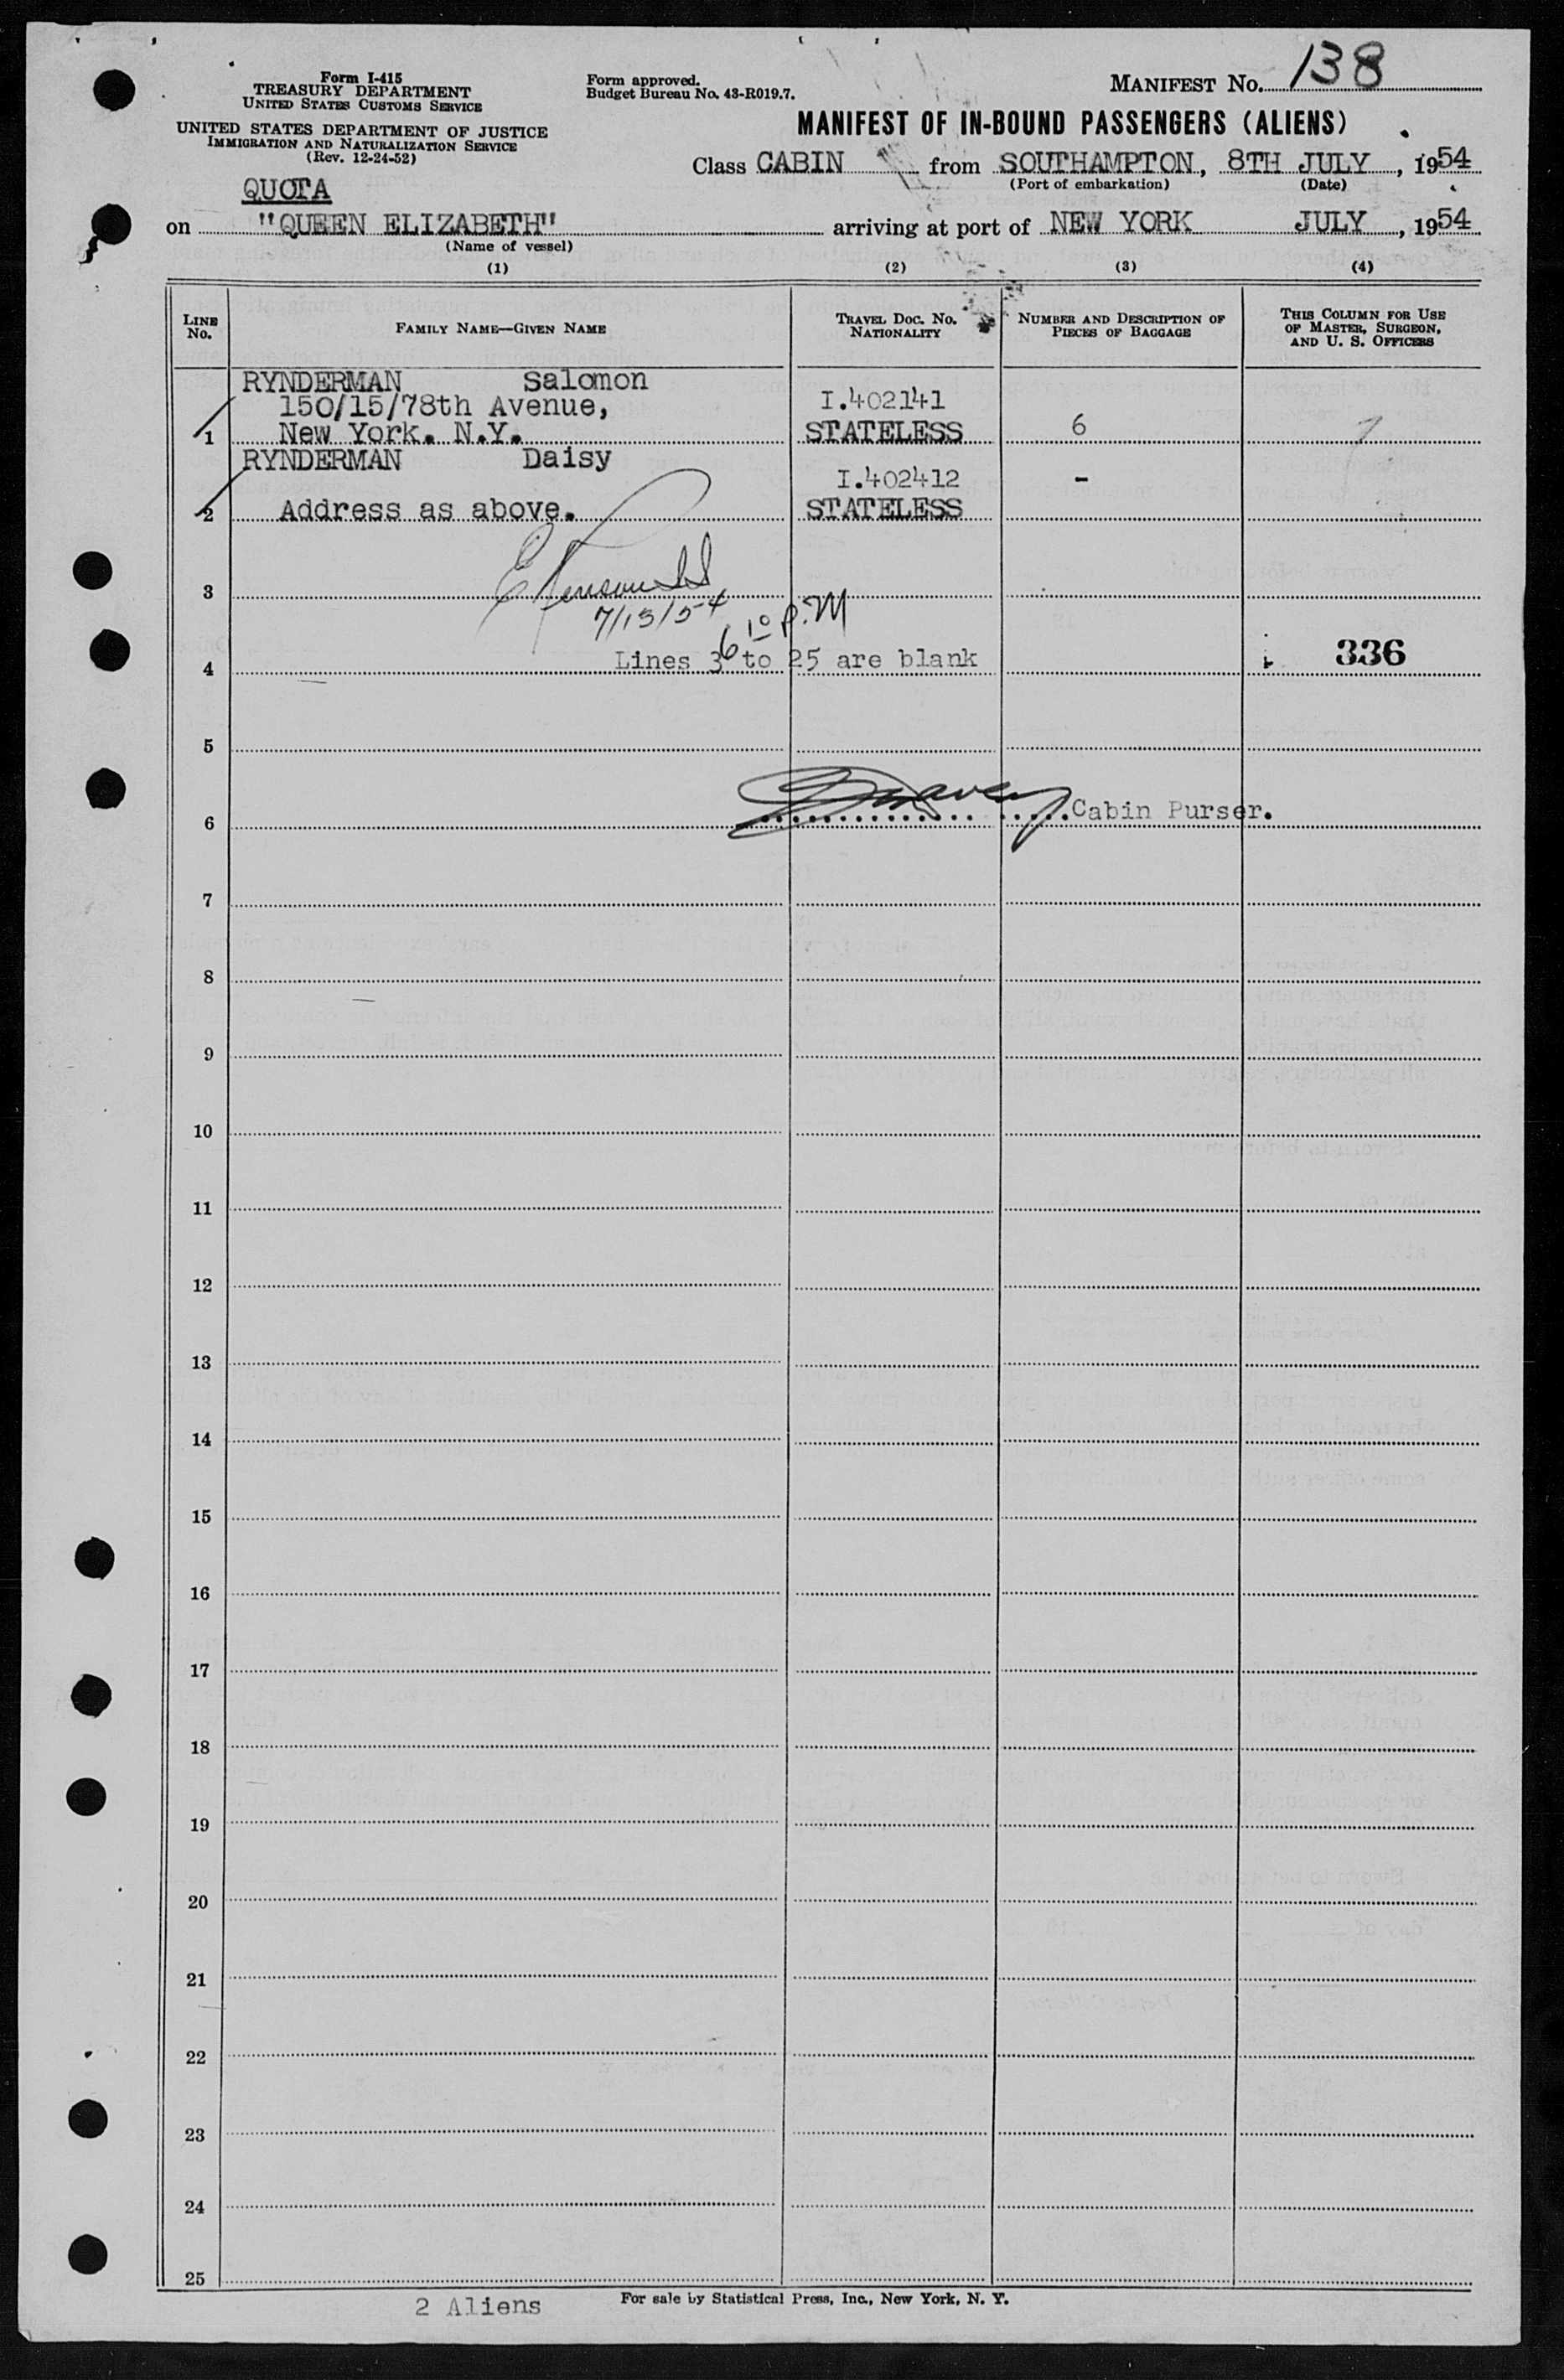 Form I-415
TREASURY DEPARTMENT
UNITED STATES CUSTOMS SERVICE
UNITED STATES DEPARTMENT OF JUSTICE
IMMIGRATION AND NATURALIZATION SERVICE
(Rev. 12-24-52)
Form approved.
Budget Bureau No. 43-R019.7.
MANIFEST No. 138
MANIFEST OF IN-BOUND PASSENGERS (ALIENS)
Class CABIN from SOUTHAMPTON, 8TH JULY, 1954
(Port of embarkation) (Date)
QUOTA
on "QUEEN ELIZABETH" arriving at port of NEW YORK JULY, 1954
(Name of vessel)
(1) (2) (3) (4)
LINE No. FAMILY NAME—GIVEN NAME TRAVEL DOC. No. NATIONALITY NUMBER AND DESCRIPTION OF PIECES OF BAGGAGE THIS COLUMN FOR USE OF MASTER, SURGEON, AND U. S. OFFICERS
RYNDERMAN Salomon
150/15/78th Avenue, I.402141
1 New York. N.Y. STATELESS 6
RYNDERMAN Daisy
I.402412 -
2 Address as above. STATELESS
3
7/13/54
6 10 P.M
4 Lines 3 to 25 are blank 336
5
6 Cabin Purser.
7
8
9
10
11
12
13
14
15
16
17
18
19
20
21
22
23
24
25
2 Aliens For sale by Statistical Press, Inc., New York, N. Y.